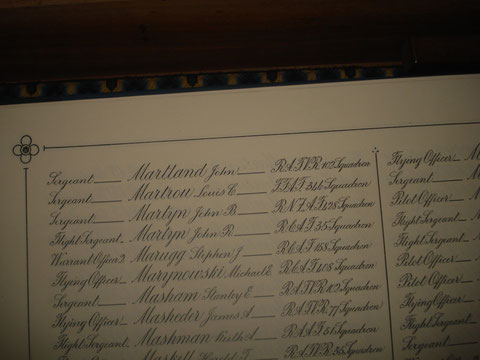 Sergeant Martland John RAFVR 102 Squadron
Sergeant Martrou Louis C FFAF 346 Squadron
Sergeant Martyn John B RNZAF 75 Squadron
Flight Sergeant Martyn John R RCAF 35 Squadron
Warrant Officer 2 Marugg Stephen J RCAF 158 Squadron
Flying Officer Marynowski Michael E RCAF 408 Squadron
Sergeant Masham Stanley E RAFVR 102 Squadron
Flying Officer Maskeder James A RAFVR 77 Squadron
Flight Sergeant Mashman Keith A RAF 51 Squadron
Maskell Harold T RAFVR 35 Squadron
Flying Officer
Sergeant
Pilot Officer
Flight Sergeant
Flight Sergeant
Pilot Officer
Pilot Officer
Flying Officer
Flight Sergeant
Sergeant